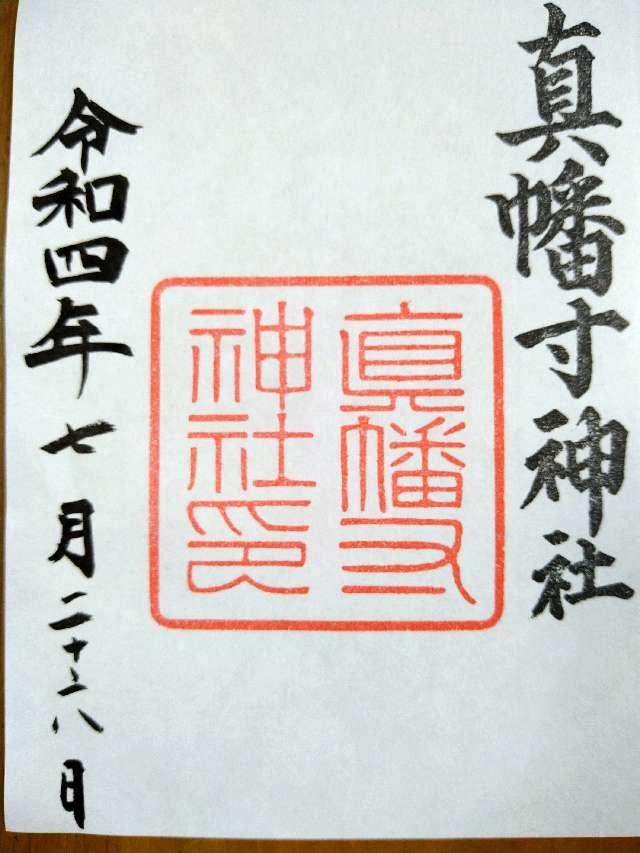 真幡寸神社
真幡寸
神社印
令和四年七月二十八日